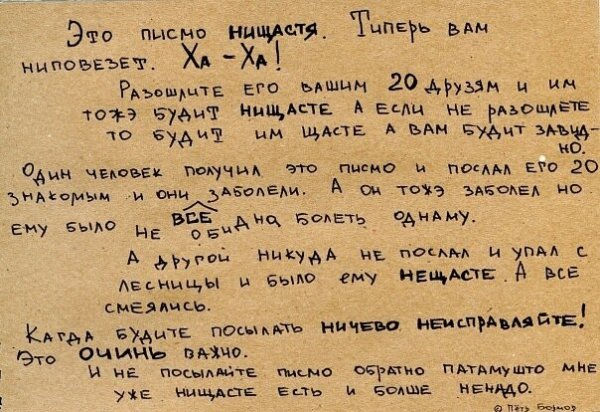 Это писмо нищастя. Типерь вам
ниповезет. Ха-Ха!
Разошлите его вашим 20 друзям и им
тожэ будит нищасте а если не разошлете
то будит им щасте а вам будит завид-
но.
Один человек получил это писмо и послал его 20
знакомым и они все заболели. А он тожэ заболел но
ему было не обидно болеть однаму.
А другой никуда не послал и упал с
лесницы и было ему нещасте. А все
смеялись.
Кагда будите посылать ничево неисправляйте!
Это очинь важно.
И не посылайте писмо обратно патамушто мне
уже нищасте есть и болше ненадо.
© Пётр